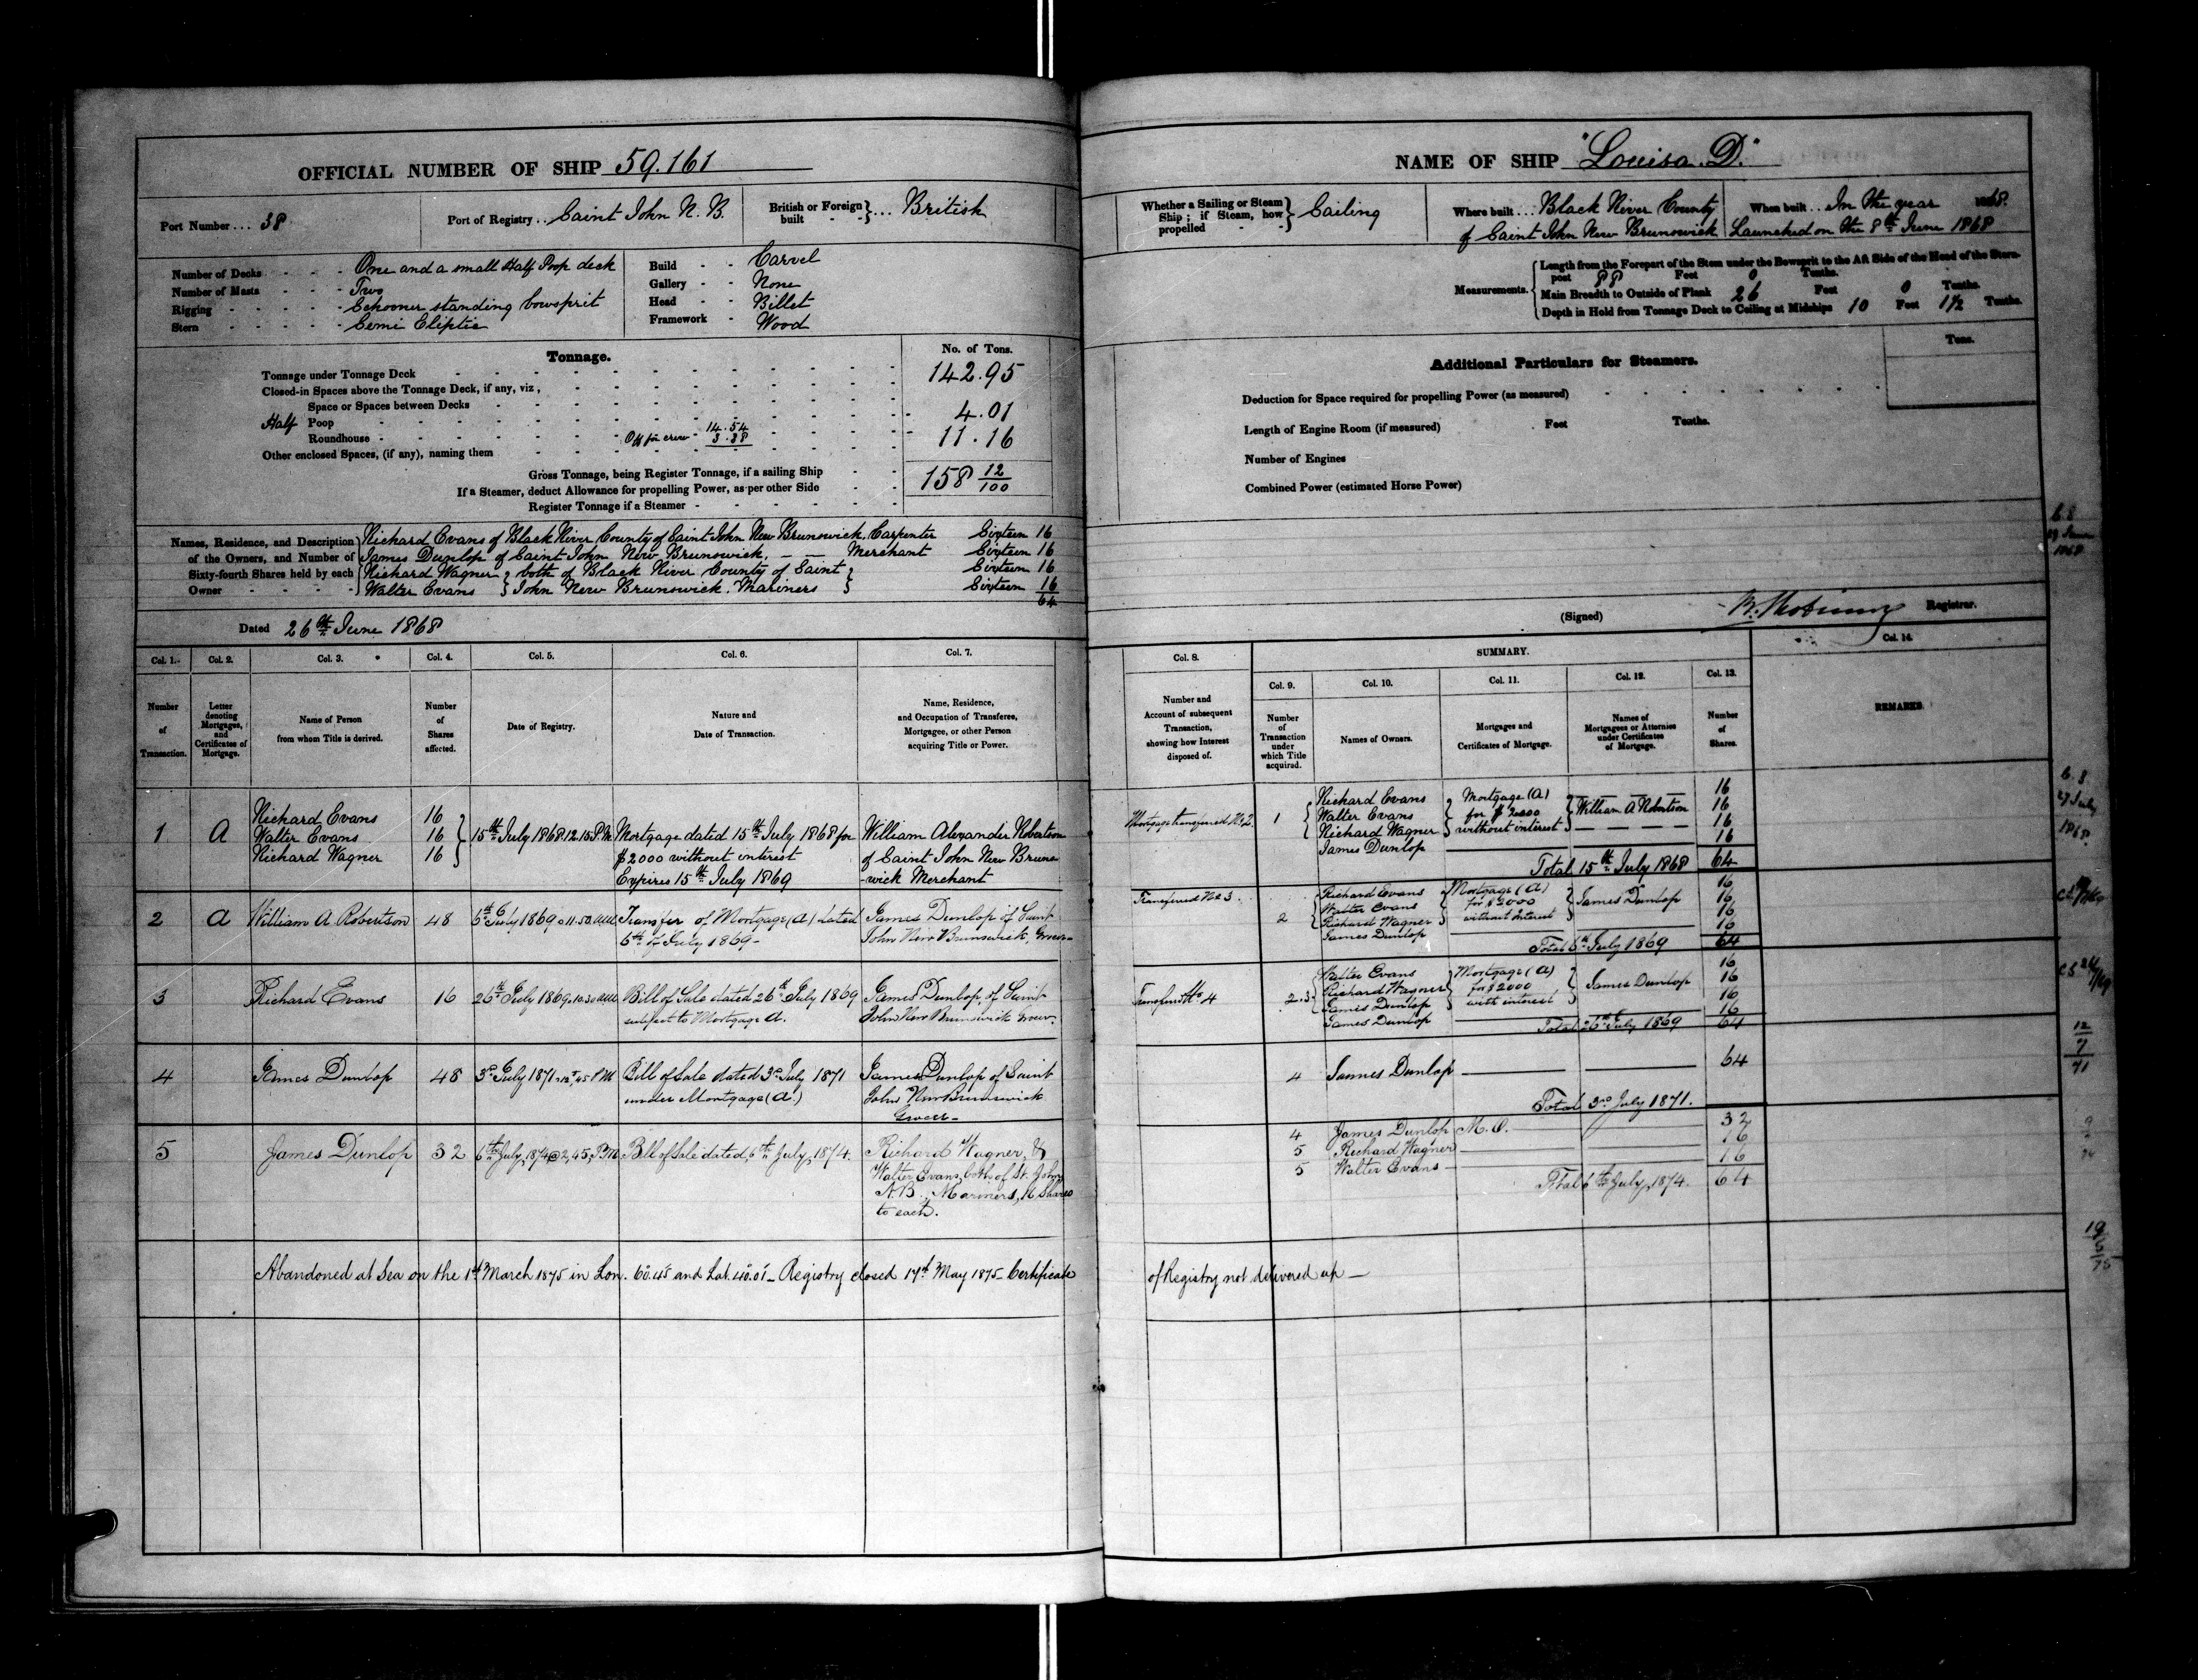 OFFICIAL NUMBER OF SHIP 59.161
Port Number ... 38
Port of Registry ... Saint John N. B.
British or Foreign built - - } ... British
Number of Decks - - - One and a small Half Poop deck
Number of Masts - - - Two
Rigging - - - - - Schooner standing bowsprit
Stern - - - - - Semi Eliptic
Build - - Carvel
Gallery - - None
Head - - Billet
Framework - Wood
Tonnage.
No. of Tons.
Tonnage under Tonnage Deck 142.95
Closed-in Spaces above the Tonnage Deck, if any, viz.,
Space or Spaces between Decks
Half Poop 4.01
Roundhouse - Off for crew 14.54 3.38 11.16
Other enclosed Spaces, (if any), naming them
Gross Tonnage, being Register Tonnage, if a sailing Ship 158 12/100
If a Steamer, deduct Allowance for propelling Power, as per other Side
Register Tonnage if a Steamer
Names, Residence, and Description of the Owners, and Number of Sixty-fourth Shares held by each Owner
Richard Evans of Black River County of Saint John New Brunswick, Carpenter Sixteen 16
James Dunlop of Saint John New Brunswick, — — Merchant Sixteen 16
Richard Wagner } both of Black River County of Saint } Sixteen 16
Walter Evans } John New Brunswick, Mariners } Sixteen 16
64
Dated 26th June 1868
Col. 1. Col. 2. Col. 3. Col. 4. Col. 5. Col. 6. Col. 7.
Number of Transaction.
Letter denoting Mortgages, and Certificates of Mortgage.
Name of Person from whom Title is derived.
Number of Shares affected.
Date of Registry.
Nature and Date of Transaction.
Name, Residence, and Occupation of Transferee, Mortgagee, or other Person acquiring Title or Power.
1 A Richard Evans 16
Walter Evans 16 } 15th July 1868 12.15 P.M. Mortgage dated 15th July 1868 for William Alexander Robertson
Richard Wagner 16 $2000 without interest of Saint John New Bruns
Expires 15th July 1869 -wick Merchant
2 A William A. Robertson 48 6th July 1869 @ 11.50 AM Transfer of Mortgage (A) dated James Dunlop of Saint
6th of July 1869 - John New Brunswick, Grocer
3 Richard Evans 16 26th July 1869 10.30 AM Bill of Sale dated 26th July 1869 James Dunlop, of Saint
subject to Mortgage A. John New Brunswick Grocer.
4 James Dunlop 48 3rd July 1871 12.45 PM Bill of Sale dated 3rd July 1871 James Dunlop of Saint
under Mortgage (A.) John New Brunswick
Grocer -
5 James Dunlop 32 6th July, 1874 @ 2,45, P.M. Bill of Sale dated, 6th July, 1874. Richard Wagner, &
Walter Evans, both of St. John
N.B., Mariners, 16 shares
to each.
Abandoned at Sea on the 1st March 1875 in Lon. 60.45 and Lat. 40.01 - Registry closed 17th May 1875 - Certificate
NAME OF SHIP "Louisa. D."
Whether a Sailing or Steam Ship; if Steam, how propelled - - } Sailing
Where built ... Black River County
of Saint John New Brunswick
When built ... In the year 1868.
Launched on the 8th June 1868
Measurements.
Length from the Forepart of the Stem under the Bowsprit to the Aft Side of the Head of the Stern-
post 88 Feet 0 Tenths.
Main Breadth to Outside of Plank 26 Feet 0 Tenths.
Depth in Hold from Tonnage Deck to Ceiling at Midships 10 Feet 1½ Tenths.
Additional Particulars for Steamers.
Tons.
Deduction for Space required for propelling Power (as measured)
Length of Engine Room (if measured) Feet Tenths.
Number of Engines
Combined Power (estimated Horse Power)
(Signed) Registrar.
Col. 8. SUMMARY. Col. 14.
Col. 9. Col. 10. Col. 11. Col. 12. Col. 13.
Number and Account of subsequent Transaction, showing how Interest disposed of.
Number of Transaction under which Title acquired.
Names of Owners.
Mortgages and Certificates of Mortgage.
Names of Mortgagees or Attornies under Certificates of Mortgage.
Number of Shares.
REMARKS.
Mortgage transferred No. 2 1 Richard Evans Mortgage (A) 16
Walter Evans for $2000 William A Robertson 16
Richard Wagner without interest 16
James Dunlop 16
Total 15th July 1868 64
Transferred No 3. 2 Richard Evans Mortgage (A) 16
Walter Evans for $2000 James Dunlop 16
Richard Wagner without Interest 16
James Dunlop 16
Total 6th July 1869 64
Transferred No 4 2.3 Walter Evans Mortgage (A) 16
Richard Wagner for $2000 James Dunlop 16
James Dunlop with interest 16
James Dunlop 16
Total 26th July 1869 64
4 James Dunlop 64
Total 3rd July 1871.
4 James Dunlop M.O. 32
5 Richard Wagner 16
5 Walter Evans 16
Total 6th July, 1874. 64
of Registry not delivered up —